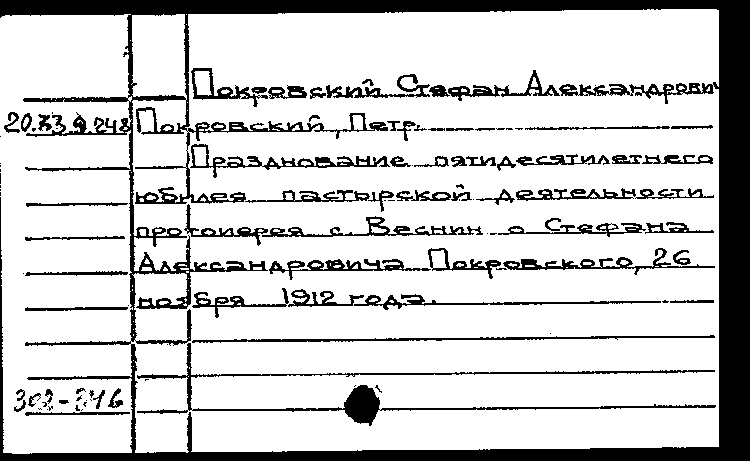 Покровский Стефан Александрович
20.33.9.248 Покровский, Петр.
Празднование пятидесятилетнего
юбилея пастырской деятельности
протоиерея с. Веснин о Стефана
Александровича Покровского, 26
ноября 1912 года.
302-346